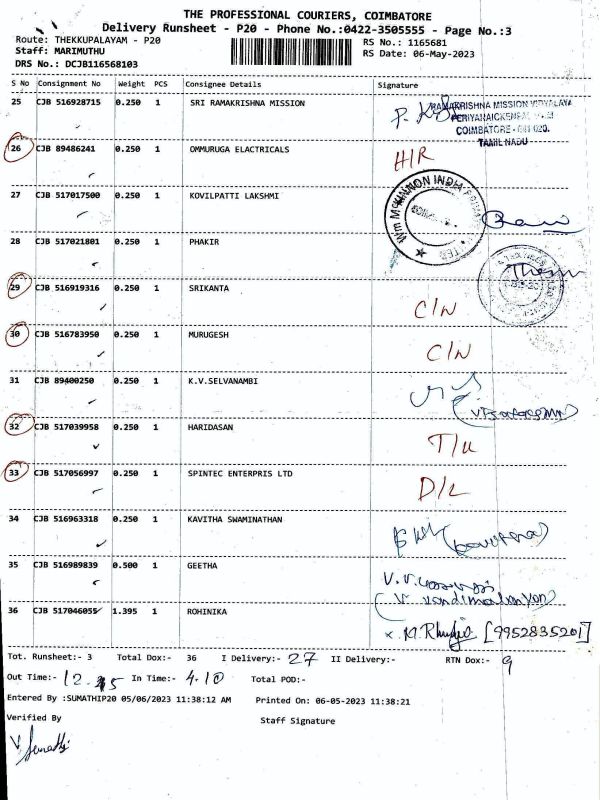 THE PROFESSIONAL COURIERS, COIMBATORE
Delivery Runsheet - P20 - Phone No.:0422-3505555 - Page No.:3
Route: THEKKUPALAYAM - P20
RS No.: 1165681
Staff: MARIMUTHU
RS Date: 06-May-2023
DRS No.: DCJB116568103
S No Consignment No Weight PCS Consignee Details Signature
25 CJB 516928715 0.250 1 SRI RAMAKRISHNA MISSION
RAMAKRISHNA MISSION VIDYALAYA
COIMBATORE - 641 020.
TAMIL NADU
26 CJB 89486241 0.250 1 OMMURUGA ELACTRICALS H/R
27 CJB 517017500 0.250 1 KOVILPATTI LAKSHMI
Wm McKINNON INDIA
28 CJB 517021801 0.250 1 PHAKIR
29 CJB 516919316 0.250 1 SRIKANTA C/N
30 CJB 516783950 0.250 1 MURUGESH C/N
31 CJB 89400250 0.250 1 K.V.SELVANAMBI
32 CJB 517039958 0.250 1 HARIDASAN T/U
33 CJB 517056997 0.250 1 SPINTEC ENTERPRIS LTD D/L
34 CJB 516963318 0.250 1 KAVITHA SWAMINATHAN
35 CJB 516989839 0.500 1 GEETHA
36 CJB 517046055 1.395 1 ROHINIKA [9952835201]
Tot. Runsheet:- 3 Total Dox:- 36 I Delivery:- 27 II Delivery:- RTN Dox:- 9
Out Time:- 12.15 In Time:- 4.10 Total POD:-
Entered By :SUMATHIP20 05/06/2023 11:38:12 AM Printed On: 06-05-2023 11:38:21
Verified By
Staff Signature